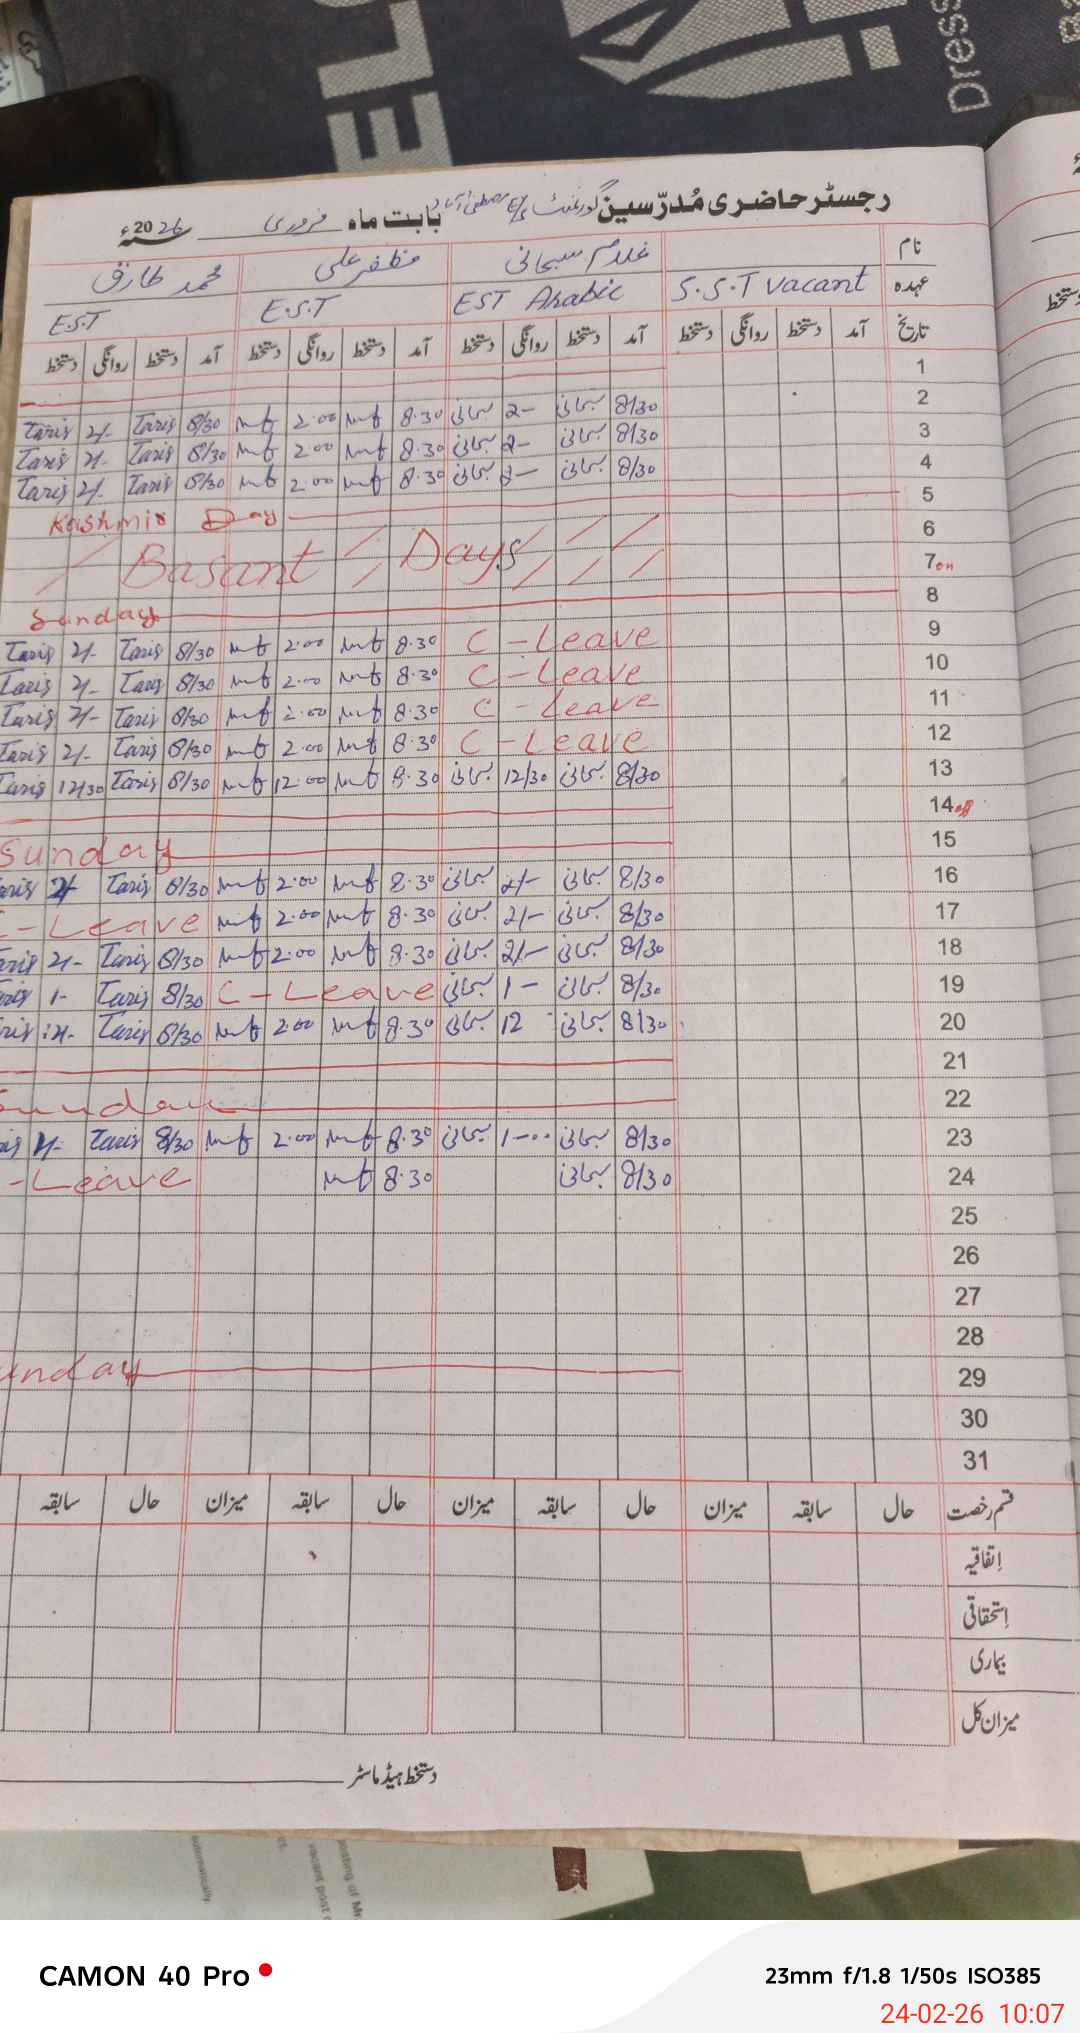 Dress
رجسٹر حاضری مُدرّسین گورنمنٹ بابت ماہ فروری 2026ء
نام غلام سبحانی مظفر علی محمد طارق
عہدہ S.S.T vacant EST Arabic E.S.T E.S.T
تاریخ آمد دستخط روانگی دستخط آمد دستخط روانگی دستخط آمد دستخط روانگی دستخط آمد دستخط روانگی دستخط
دستخط
1
2 8/30 سبحانی 2- سبحانی 8.30 2.00 8/30 Tariq 2/- Tariq
3 8/30 سبحانی 2- سبحانی 8.30 2.00 8/30 Tariq 2/- Tariq
4 8/30 سبحانی 2- سبحانی 8.30 2.00 8/30 Tariq 2/- Tariq
5 Kashmir Day
6 Basant Days
7
8 Sunday
9 C-Leave 8.30 2.00 8/30 Tariq 2/- Tariq
10 C-Leave 8.30 2.00 8/30 Tariq 2/- Tariq
11 C-Leave 8.30 2.00 8/30 Tariq 2/- Tariq
12 C-Leave 8.30 2.00 8/30 Tariq 2/- Tariq
13 8/30 سبحانی 12/30 سبحانی 8.30 12.00 8/30 Tariq 12/30 Tariq
14 off
15 Sunday
16 8/30 سبحانی 2/- سبحانی 8.30 2.00 8/30 Tariq 2/-
17 8/30 سبحانی 2/- سبحانی 8.30 2.00 -Leave
18 8/30 سبحانی 2/- سبحانی 8.30 2.00 8/30 Tariq 2/-
19 8/30 سبحانی 1- سبحانی C-Leave 8/30 Tariq 1-
20 8/30 سبحانی 12 سبحانی 8.30 2.00 8/30 Tariq
21
22 Sunday
23 8/30 سبحانی 1-00 سبحانی 8.30 2.00 8/30 Tariq
24 8/30 سبحانی 8.30 -Leave
25
26
27
28
29 unday
30
31
قسم رخصت حال سابقہ میزان حال سابقہ میزان حال سابقہ میزان حال سابقہ
اِتفاقیہ
اِستحقاقی
بیماری
میزان کل
دستخط ہیڈ ماسٹر
automatically.
vacant post
posting of Mr
CAMON 40 Pro
23mm f/1.8 1/50s ISO385
24-02-26 10:07